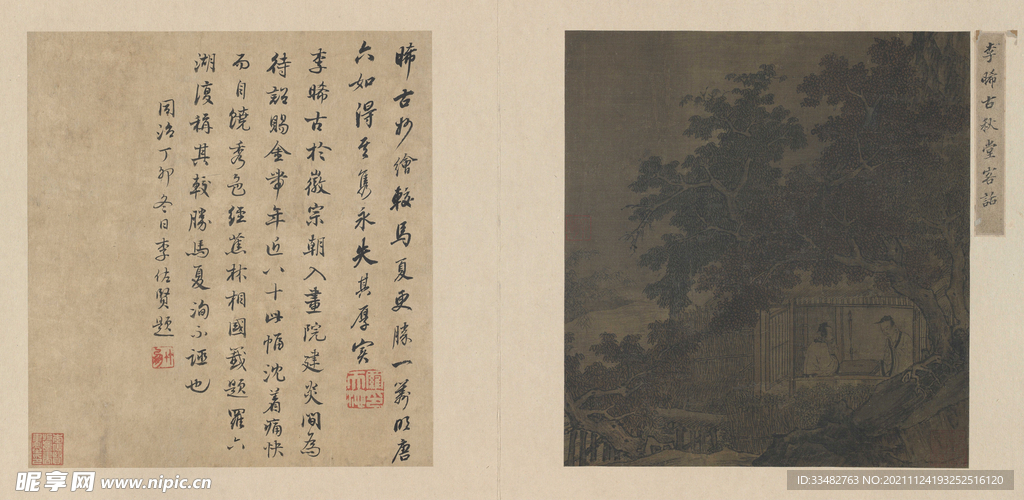 李晞古秋堂客話
晞古妙繪較馬夏更勝一籌明唐
六如得其雋永失其厚實
李晞古於徽宗朝入畫院建炎間為
待詔賜金帶年近八十此幅沈着痛快
而自饒秀色經蕉林相國籤題羅六
湖復稱其較勝馬夏洵不誣也
同治丁卯冬日李佐賢題
昵享网 www.nipic.cn
ID:33482763 NO:20211124193252516120